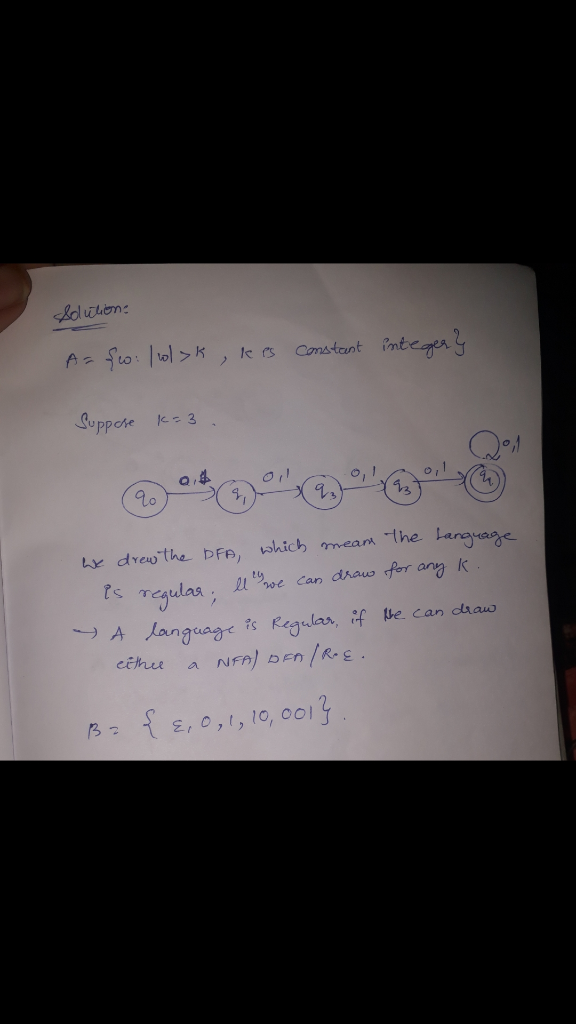 Solution:
A = {w: |w| > K, K is constant integer}
Suppose K = 3.
0,1 0,1 0,1 0,1 0,1
q0 q1 q3 q3
We drew the DFA, which means the Language
is regular; lly we can draw for any K.
→ A language is Regular, if We can draw
either a NFA/ DFA /R.E.
B = { ε, 0, 1, 10, 001}.